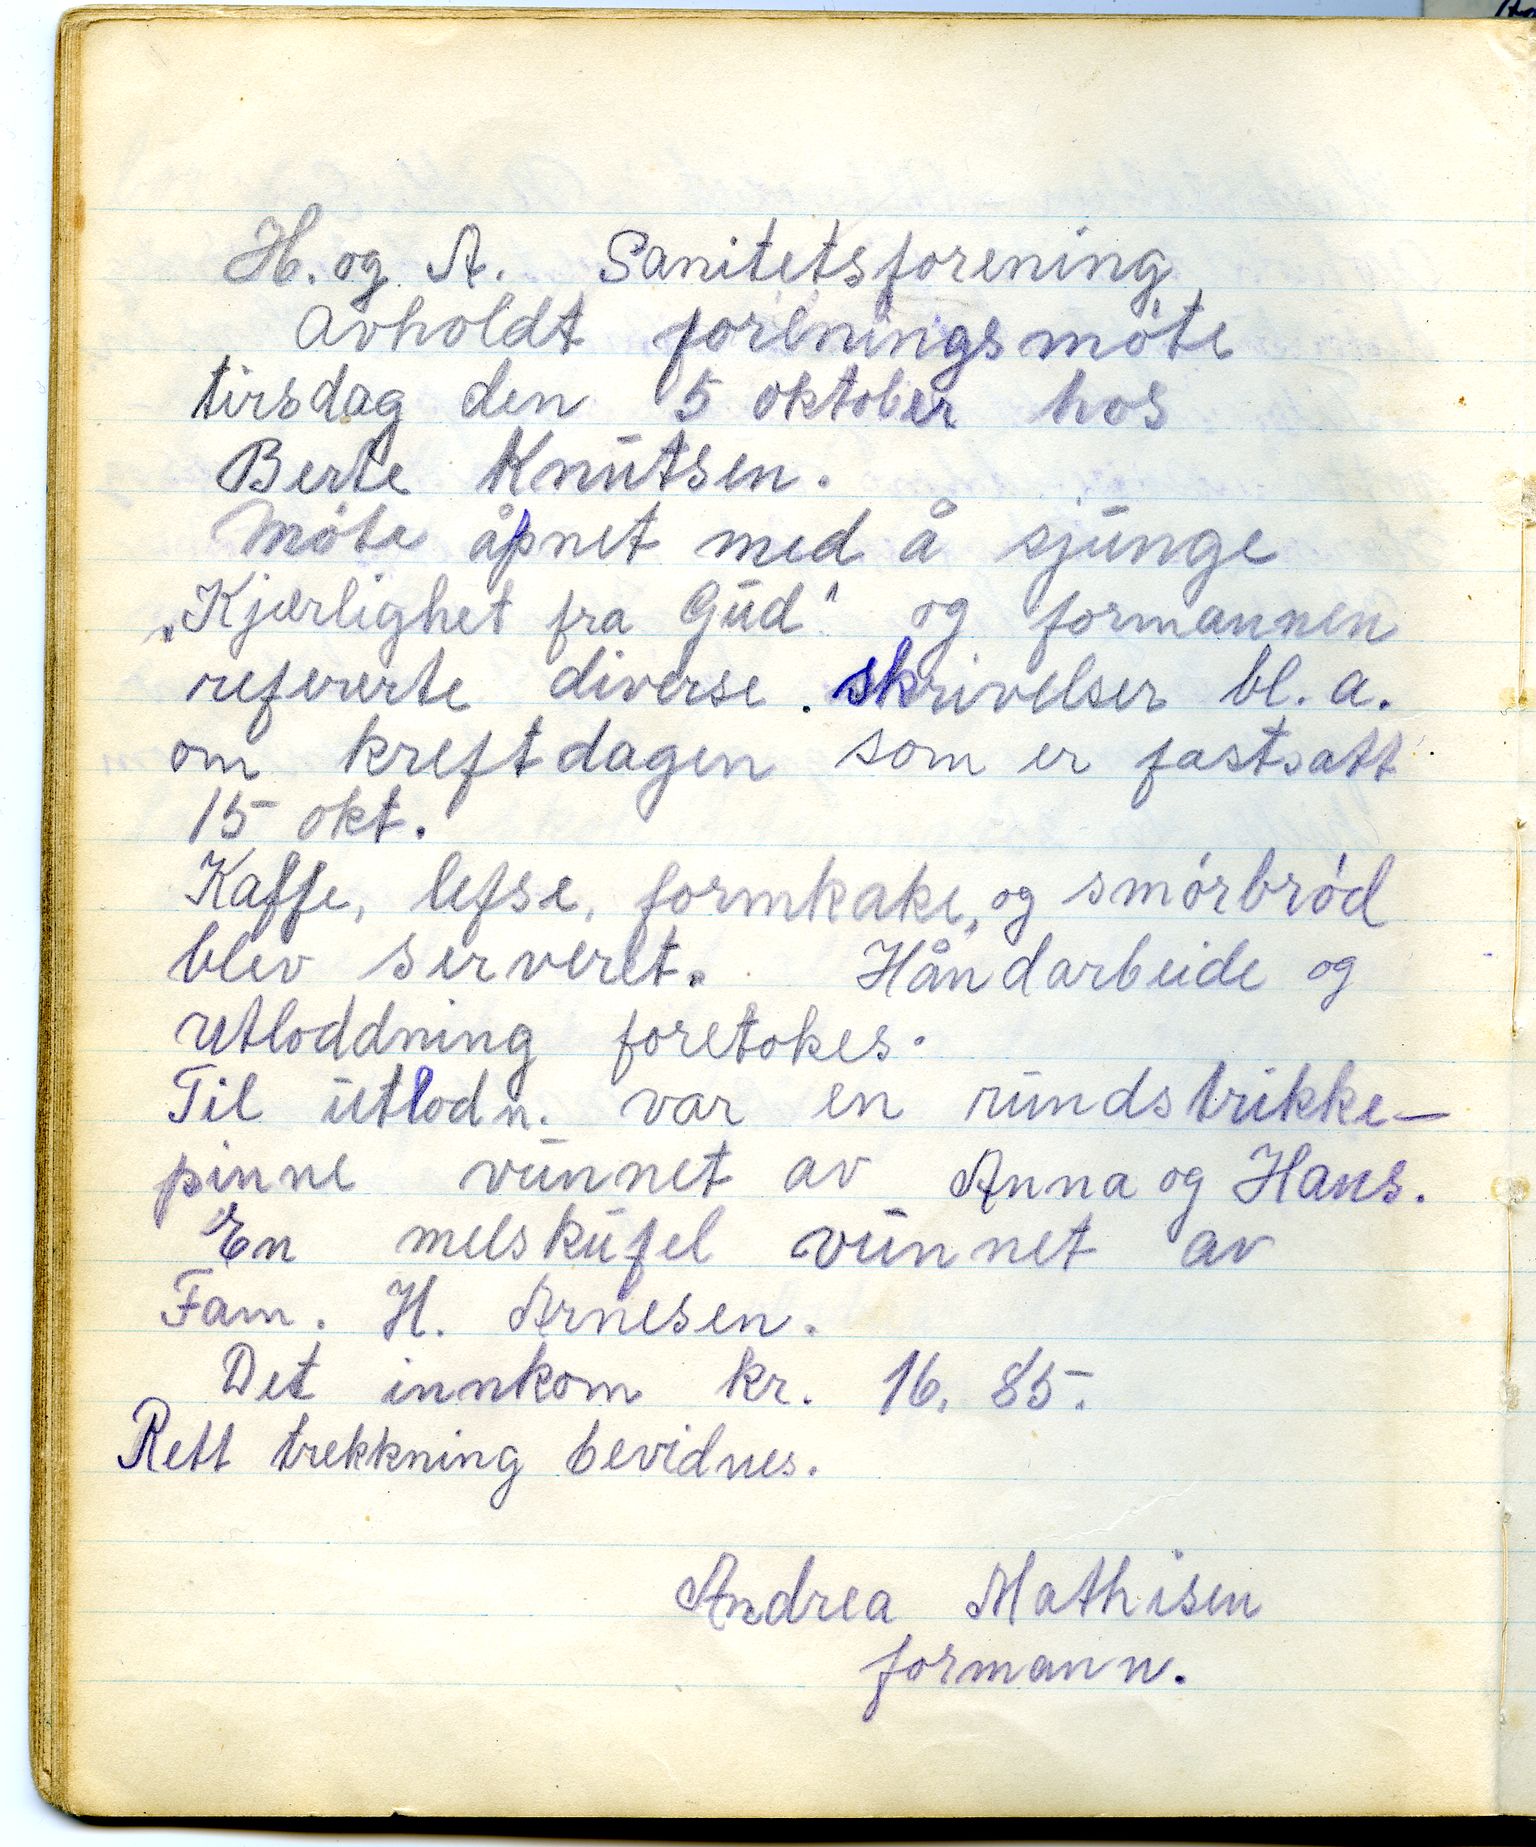 H. og A. Sanitetsforening
avholdt foreningsmöte
tirsdag den 5 oktober hos
Berte Knutsen.
Möte åpnet med å sjunge
„Kjærlighet fra Gud" og formannen
refererte diverse. skrivelser bl. a.
om kreftdagen som er fastsatt
15 okt.
Kaffe, lefse, formkake, og smórbród
blev serveret. Håndarbeide og
utloddning foretokes.
Til utlodn. var en rundstrikke-
pinne vunnet av Anna og Hans.
En melskufel vunnet av
Fam. H. Arnesen.
Det innkom kr. 16. 85.
Rett trekkning bevidnes.
Andrea Mathisen
formann.